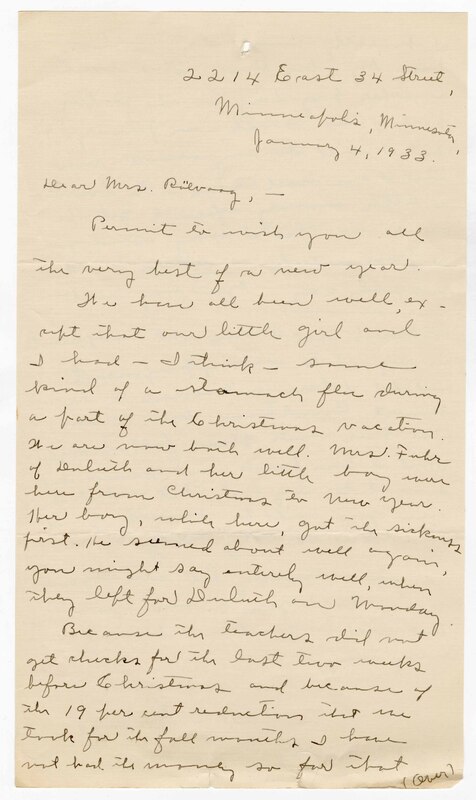 2214 East 34 Street,
Minneapolis, Minnesota,
January 4, 1933.
Dear Mrs. Rölvaag, —
Permit to wish you all
the very best of a new year.
We have all been well, ex-
cept that our little girl and
I had — I think — some
kind of a stomach flu during
a part of the Christmas vacation.
We are now both well. Mrs. Fuhr
of Duluth and her little boy were
here from Christmas to New Year.
Her boy, while here, got the sickness
first. He seemed about well again,
you might say entirely well, when
they left for Duluth on Monday.
Because the teachers did not
get checks for the last two weeks
before Christmas and because of
the 19 per cent reduction that we
took for the fall months I have
not had the money so far that
(Over)